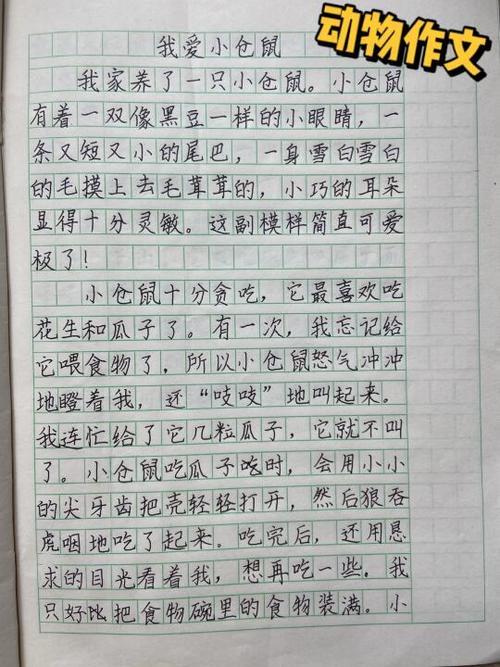 动物作文
我爱小仓鼠
我家养了一只小仓鼠。小仓鼠
有着一双像黑豆一样的小眼睛，一
条又短又小的尾巴，一身雪白雪白
的毛摸上去毛茸茸的，小巧的耳朵
显得十分灵敏。这副模样简直可爱
极了！
小仓鼠十分贪吃，它最喜欢吃
花生和瓜子了。有一次，我忘记给
它喂食物了，所以小仓鼠怒气冲冲
地瞪着我，还“吱吱”地叫起来。
我连忙给了它几粒瓜子，它就不叫
了。小仓鼠吃瓜子吃时，会用小小
的尖牙齿把壳轻轻打开，然后狼吞
虎咽地吃了起来。吃完后，还用恳
求的目光看着我，想再吃一些。我
只好把食物碗里的食物装满。小